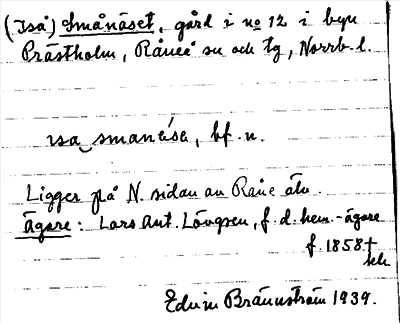 (Iså) Smånäset, gård i no 12 i byn
Prästholm, Råneå sn och tg, Norrb. l.
ɪsa smanǻsə, bf. n.
Ligger på N. sidan av Råne älv.
Ägare: Lars Ant. Lövgren, f. d. hem.-ägare
f. 1858 †
Edvin Brännström 1939.